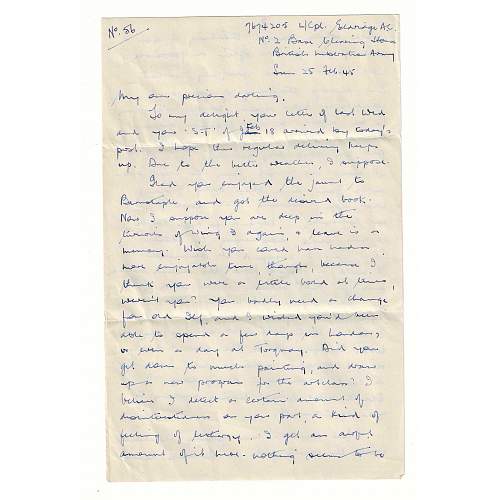 No. 56
7674205 L/Cpl. Eldridge A.C.
No. 2 Base Clearing
British Liberation Army
Sun 25 Feb. 45
My own precious darling,
To my delight your letter of last Wed
and your 'S-T' of Feb 18 arrived by today's
post. I hope this regular delivery keeps
up. Due to the better weather, I suppose.
Glad you enjoyed the jaunt to
Barnstaple, and got the desired book.
Now I suppose you are deep in the
throes of Wing I again, & leave is a
memory. Wish you could have had a
more enjoyable time, though, because I
think you were a little bored at times,
weren't you? You badly need a change
from old Ilf, and I wished you'd been
able to spend a few days in London,
or even a day at Torquay. Did you
get down to much painting, and draw
up a new program for the art class? I
believe I detect a certain amount of
disinterestedness on your part, a kind of
feeling of lethargy. I get an awful
amount of it here - nothing seems to be